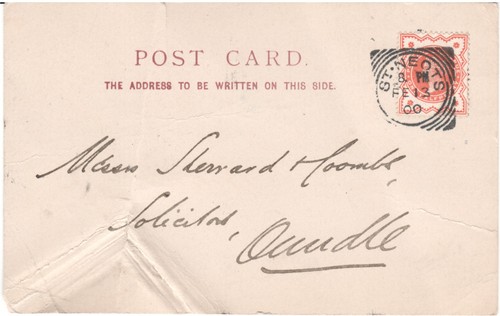 POST CARD.
THE ADDRESS TO BE WRITTEN ON THIS SIDE.
ST. NEOTS
8 PM
FE 13
00
Messrs Sherrard & Coombs,
Solicitors,
Oundle